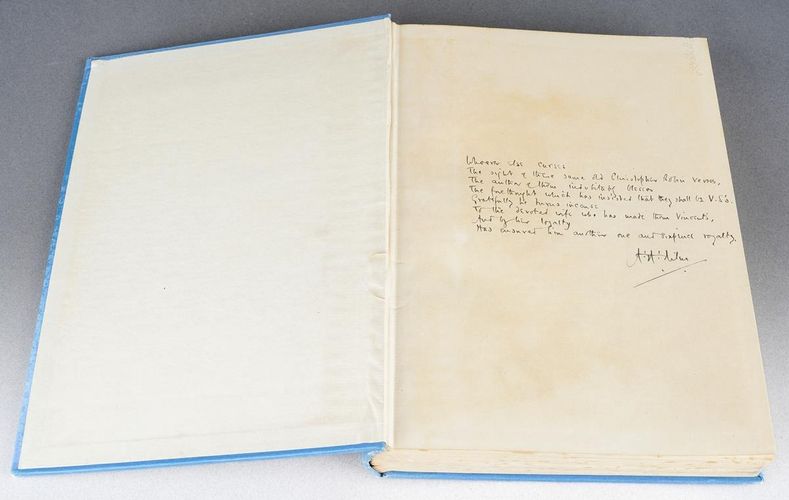 Whoever else curses
The sight of these same old Christopher Robin verses,
The author of them indubitably blesses
The forethought which has insisted that they shall be V.S's.
Gratefully he burns incense
To the devoted wife who has made them Vincent's,
And by her loyalty
Has ensured him another one and sixpence royalty.
A.A. Milne